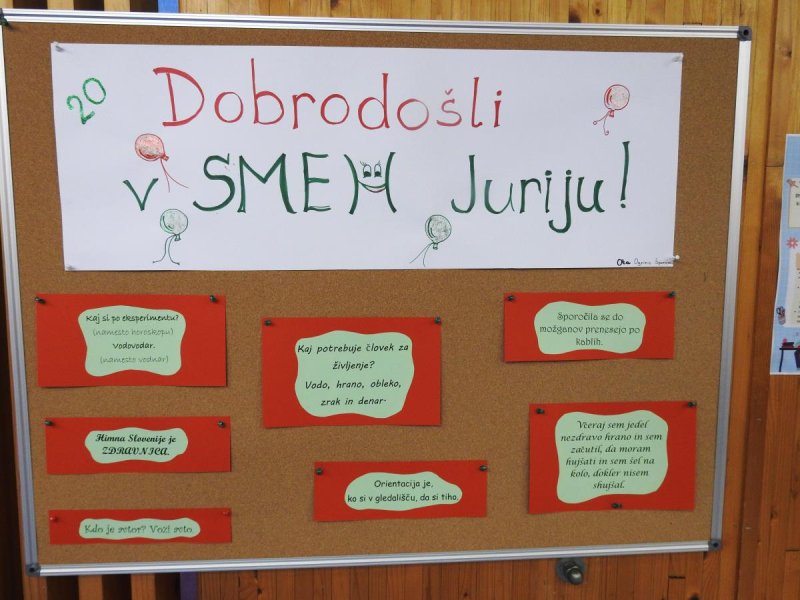 20
Dobrodošli
v SMEH Juriju!
Kaj si po eksperimentu?
(namesto horoskopu)
Vodovodar.
(namesto vodnar)
Kaj potrebuje človek za
življenje?
Vodo, hrano, obleko,
zrak in denar.
Sporočila se do
možganov prenesejo po
kablih.
Himna Slovenije je
ZDRAVNICA.
Orientacija je,
ko si v gledališču, da si tiho.
Včeraj sem jedel
nezdravo hrano in sem
začutil, da moram
hujšati in sem šel na
kolo, dokler nisem
shujšal.
Kdo je avtor? Vozi avto.